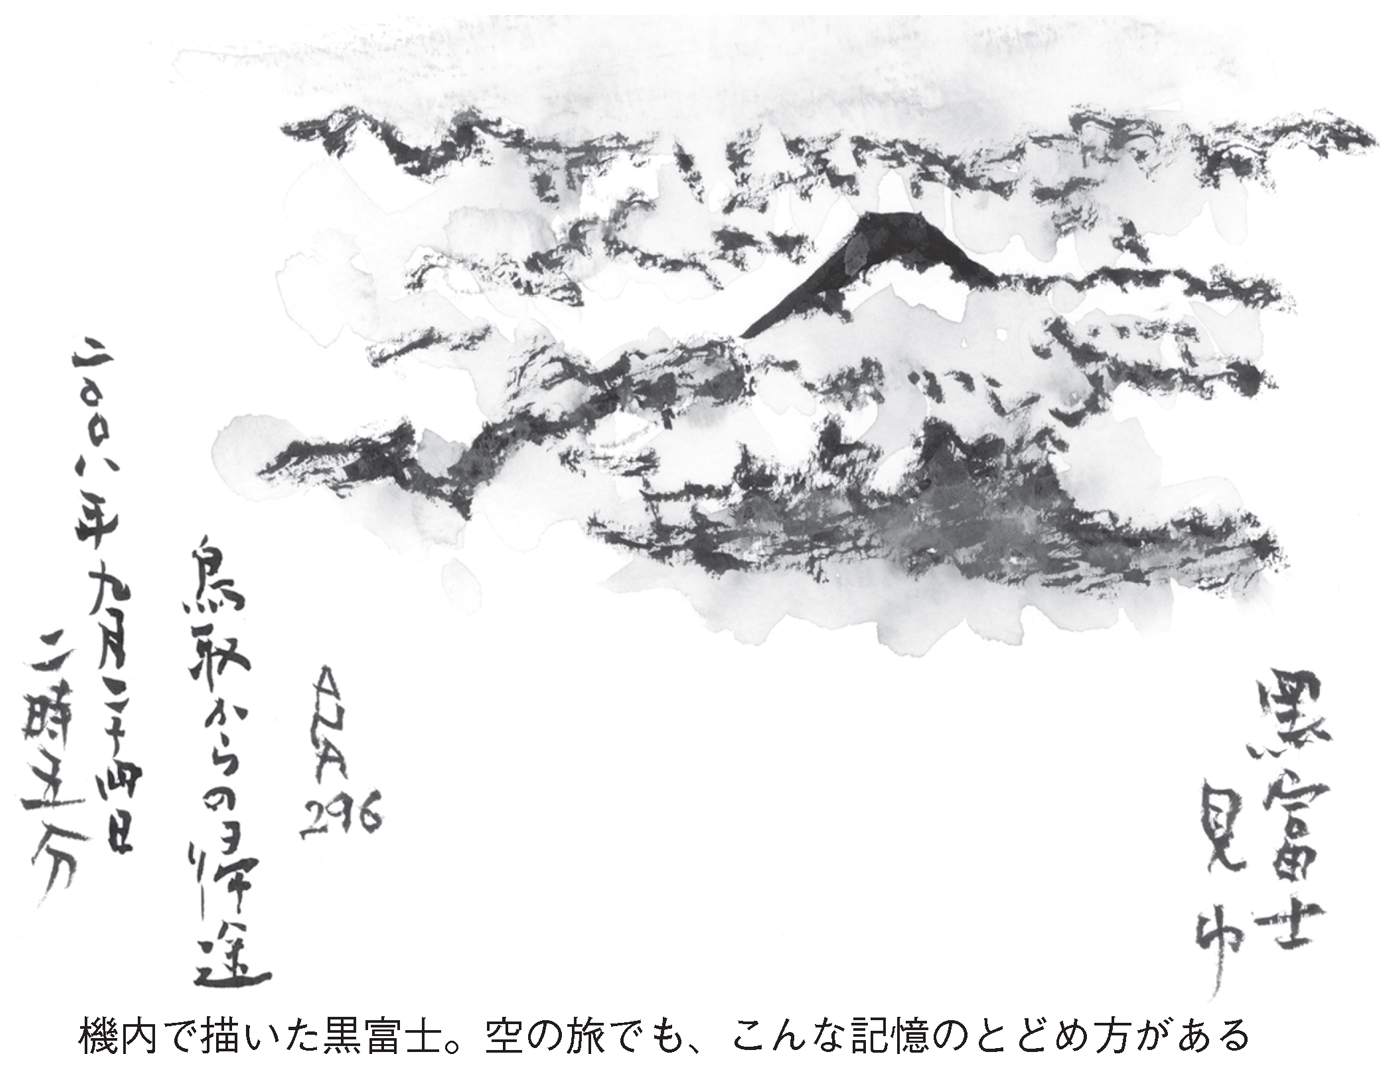 黒富士
見ゆ
ANA
296
鳥取からの帰途
二〇〇八年九月二十四日
二時五分
機内で描いた黒富士。空の旅でも、こんな記憶のとどめ方がある